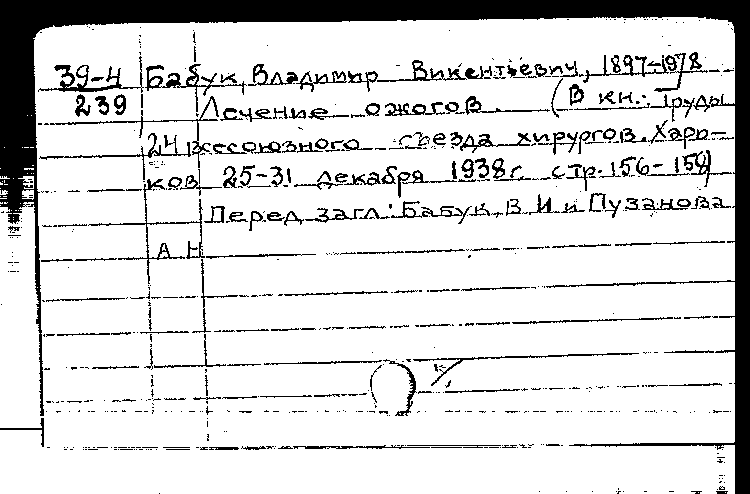 39-4 Бабук, Владимир Викентьевич, 1897-1978
239 Лечение ожогов. (В кн.: Труды
24 всесоюзного съезда хирургов. Харь-
ков 25-31 декабря 1938г. стр. 156-159)
Перед загл: Бабук, В И и Пузанова
А Н